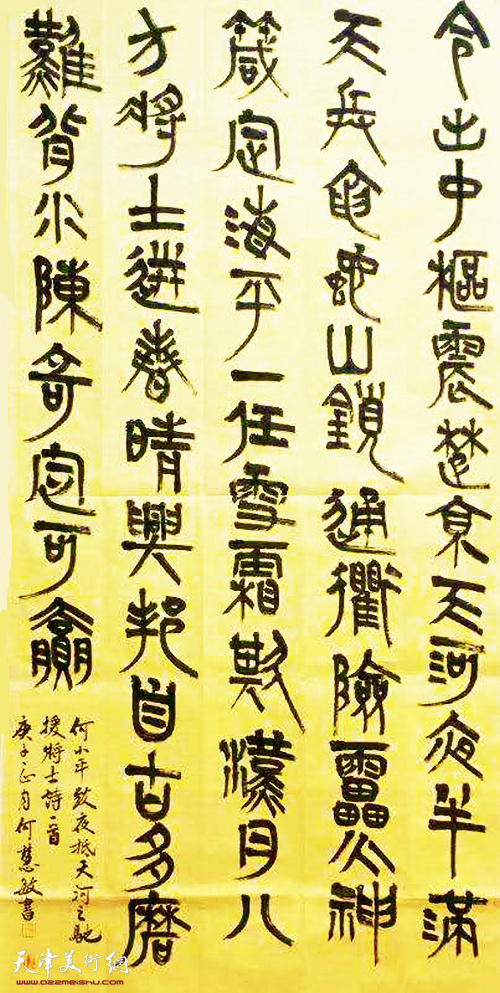 令出中樞震楚京天河夜半滿
天兵龜蛇山鎖通衢險雷火神
箴定海平一任雪霜欺漢月八
方將士送春晴興邦自古多磨
難背水陳奇定可贏
何小平致夜抵天河之馳
援將士詩一首
庚子正月何慧敏書
天津美術網
www.022meishu.com